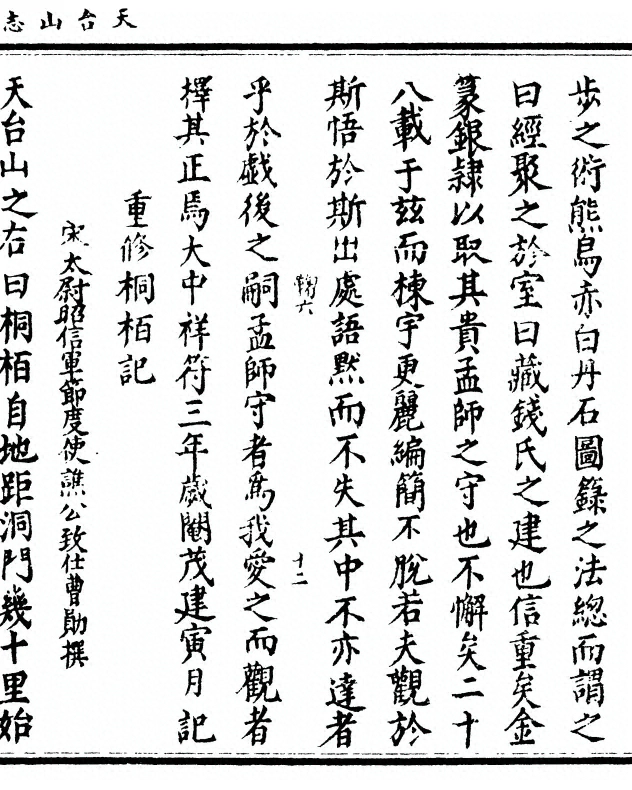 天台山志
步之術熊鳥赤白丹石圖籙之法總而謂之
曰經聚之於室曰藏錢氏之建也信重矣金
篆銀隸以取其貴孟師之守也不懈矣二十
八載于玆而棟宇更麗編簡不脫若夫觀於
斯悟於斯出處語默而不失其中不亦達者
鞠六
十二
乎於戲後之嗣孟師守者為我愛之而觀者
擇其正焉大中祥符三年歲閹茂建寅月記
重修桐栢記
宋太尉昭信軍節度使譙公致仕曹勛撰
天台山之右曰桐栢自地距洞門幾十里始